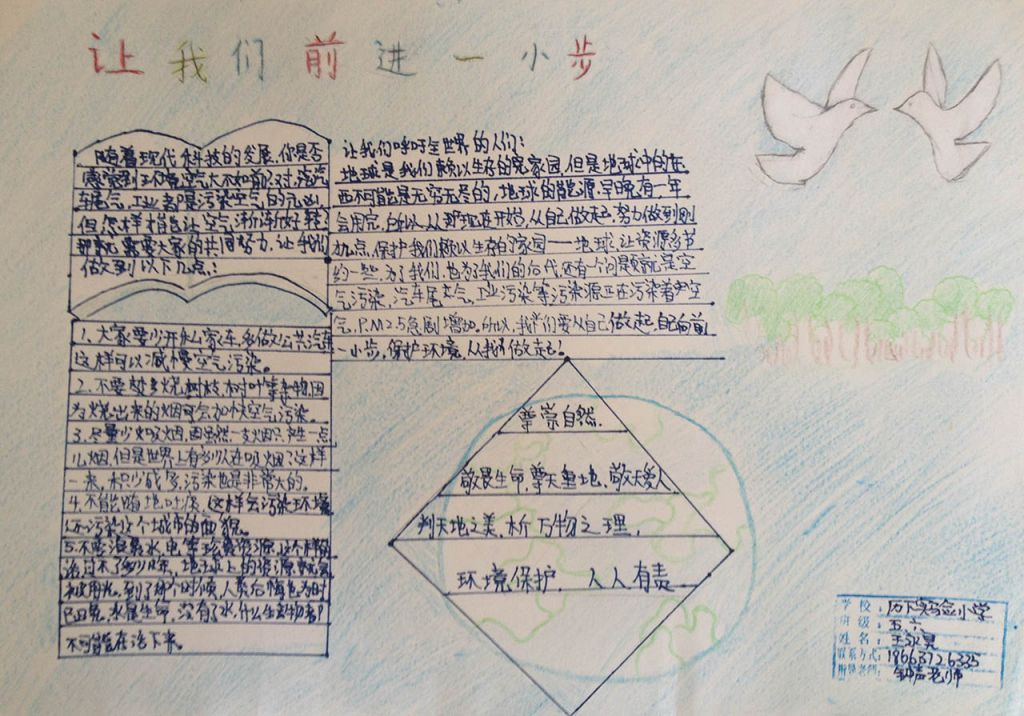 让我们前进一小步
随着现代科技的发展,你是否
感觉到了空气大不如前
车尾气,工业
但怎样才能让空气渐渐好转
那就需要大家的共同努力,让我们
做到以下几点:
1、大家要少开私家车,多做公共汽车
这样可以减慢空气污染。
2、不要焚烧树枝、树叶等杂物,因
为烧出来的烟可会加快空气污染。
3、尽量少吸烟,因虽然一支烟只产生一点
儿烟,但是世界上有多少人在吸烟?这样
一来,积少成多,污染也是非常大的。
4、不能随地吐痰,这样会污染环境
还污染这个城市的面貌。
5、不要浪费水、电、等珍贵资源,这个样的
话,过不了多少年,地球上的资源就会
被用光,到了那个时候,人类后悔也为时
已晚,水是生命,没有了水,什么生物都
不可能在活下来。
让我们呼吁全世界的人们:
地球是我们赖以生存的家园,但是地球中的东
西不可能是无穷无尽的,地球的能源早晚有一年
会用完,所以,从现在开始,从自己做起,努力做到刚
几点,保护我们赖以生存的家园——地球,让资源多节
约一些,为了我们,也为了我们的后代,还有个问题就是空
气污染,汽车尾气,工业污染等污染源正在污染着空
气,P.M2.5急剧增加,所以,我们要从自己做起,自向前
一小步,保护环境,从我做起!
尊崇自然,
敬畏生命,尊天重地、敬天爱人
判天地之美,析万物之理,
环境保护,人人有责
学校:历下实验小学
班级:五、六
姓名:
联系方式:18663726335
指导老师:钟声老师